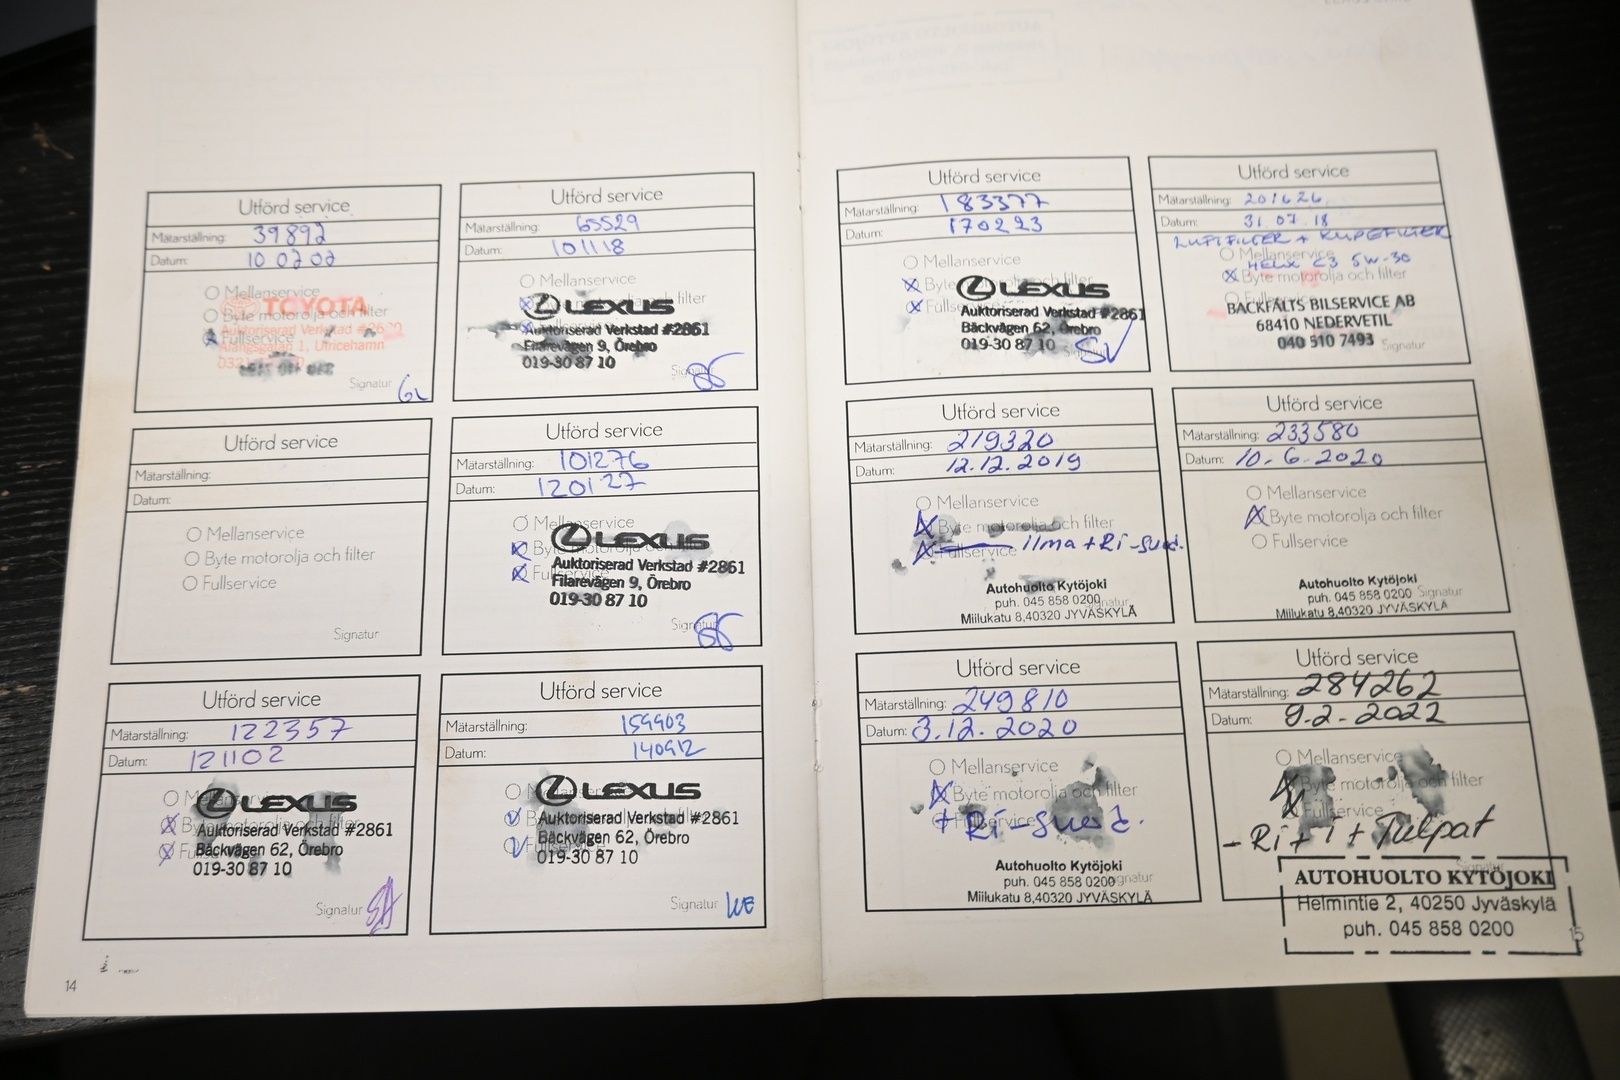 Utförd service
Mätarställning: 39892
Datum: 10 02 02
Mellanservice
TOYOTA
Byte motorolja och filter
Auktoriserad Verkstad
Fullservice
1, Ulricehamn
Signatur GL
Utförd service
Mätarställning: 65529
Datum: 101118
Mellanservice
LEXUS
Auktoriserad Verkstad #2861
Filarevägen 9, Örebro
019-30 87 10
Utförd service
Mätarställning:
Datum:
Mellanservice
Byte motorolja och filter
Fullservice
Signatur
Utförd service
Mätarställning: 101276
Datum: 120127
Mellanservice
LEXUS
Auktoriserad Verkstad #2861
Filarevägen 9, Örebro
019-30 87 10
Signatur
Utförd service
Mätarställning: 122357
Datum: 121102
LEXUS
Auktoriserad Verkstad #2861
Bäckvägen 62, Örebro
019-30 87 10
Signatur
Utförd service
Mätarställning: 159903
Datum: 140912
LEXUS
Auktoriserad Verkstad #2861
Bäckvägen 62, Örebro
019-30 87 10
Signatur
14
Utförd service
Mätarställning: 183377
Datum: 170223
Mellanservice
LEXUS
Auktoriserad Verkstad #2861
Bäckvägen 62, Örebro
019-30 87 10
Utförd service
Mätarställning: 201626
Datum: 31.07.18
LUFTFILTER + KUPEFILTER
Mellanservice
HELIX C3 5W-30
Byte motorolja och filter
BACKFÄLTS BILSERVICE AB
68410 NEDERVETIL
040 510 7493 Signatur
Utförd service
Mätarställning: 219320
Datum: 12.12.2019
Mellanservice
Byte motorolja och filter
Fullservice ilma + Ri-suod.
Autohuolto Kytöjoki
puh. 045 858 0200
Miilukatu 8,40320 JYVÄSKYLÄ
Utförd service
Mätarställning: 233580
Datum: 10.6.2020
Mellanservice
Byte motorolja och filter
Fullservice
Autohuolto Kytöjoki
puh. 045 858 0200 Signatur
Miilukatu 8,40320 JYVÄSKYLÄ
Utförd service
Mätarställning: 249810
Datum: 3.12.2020
Mellanservice
Byte motorolja och filter
+ Ri-suod.
Autohuolto Kytöjoki
puh. 045 858 0200
Miilukatu 8,40320 JYVÄSKYLÄ
Utförd service
Mätarställning: 284262
Datum: 9.2.2022
Mellanservice
Byte motorolja och filter
Fullservice
- Ri + i + Tulpat
Signatur
AUTOHUOLTO KYTÖJOKI
Helmintie 2, 40250 Jyväskylä
puh. 045 858 0200
15